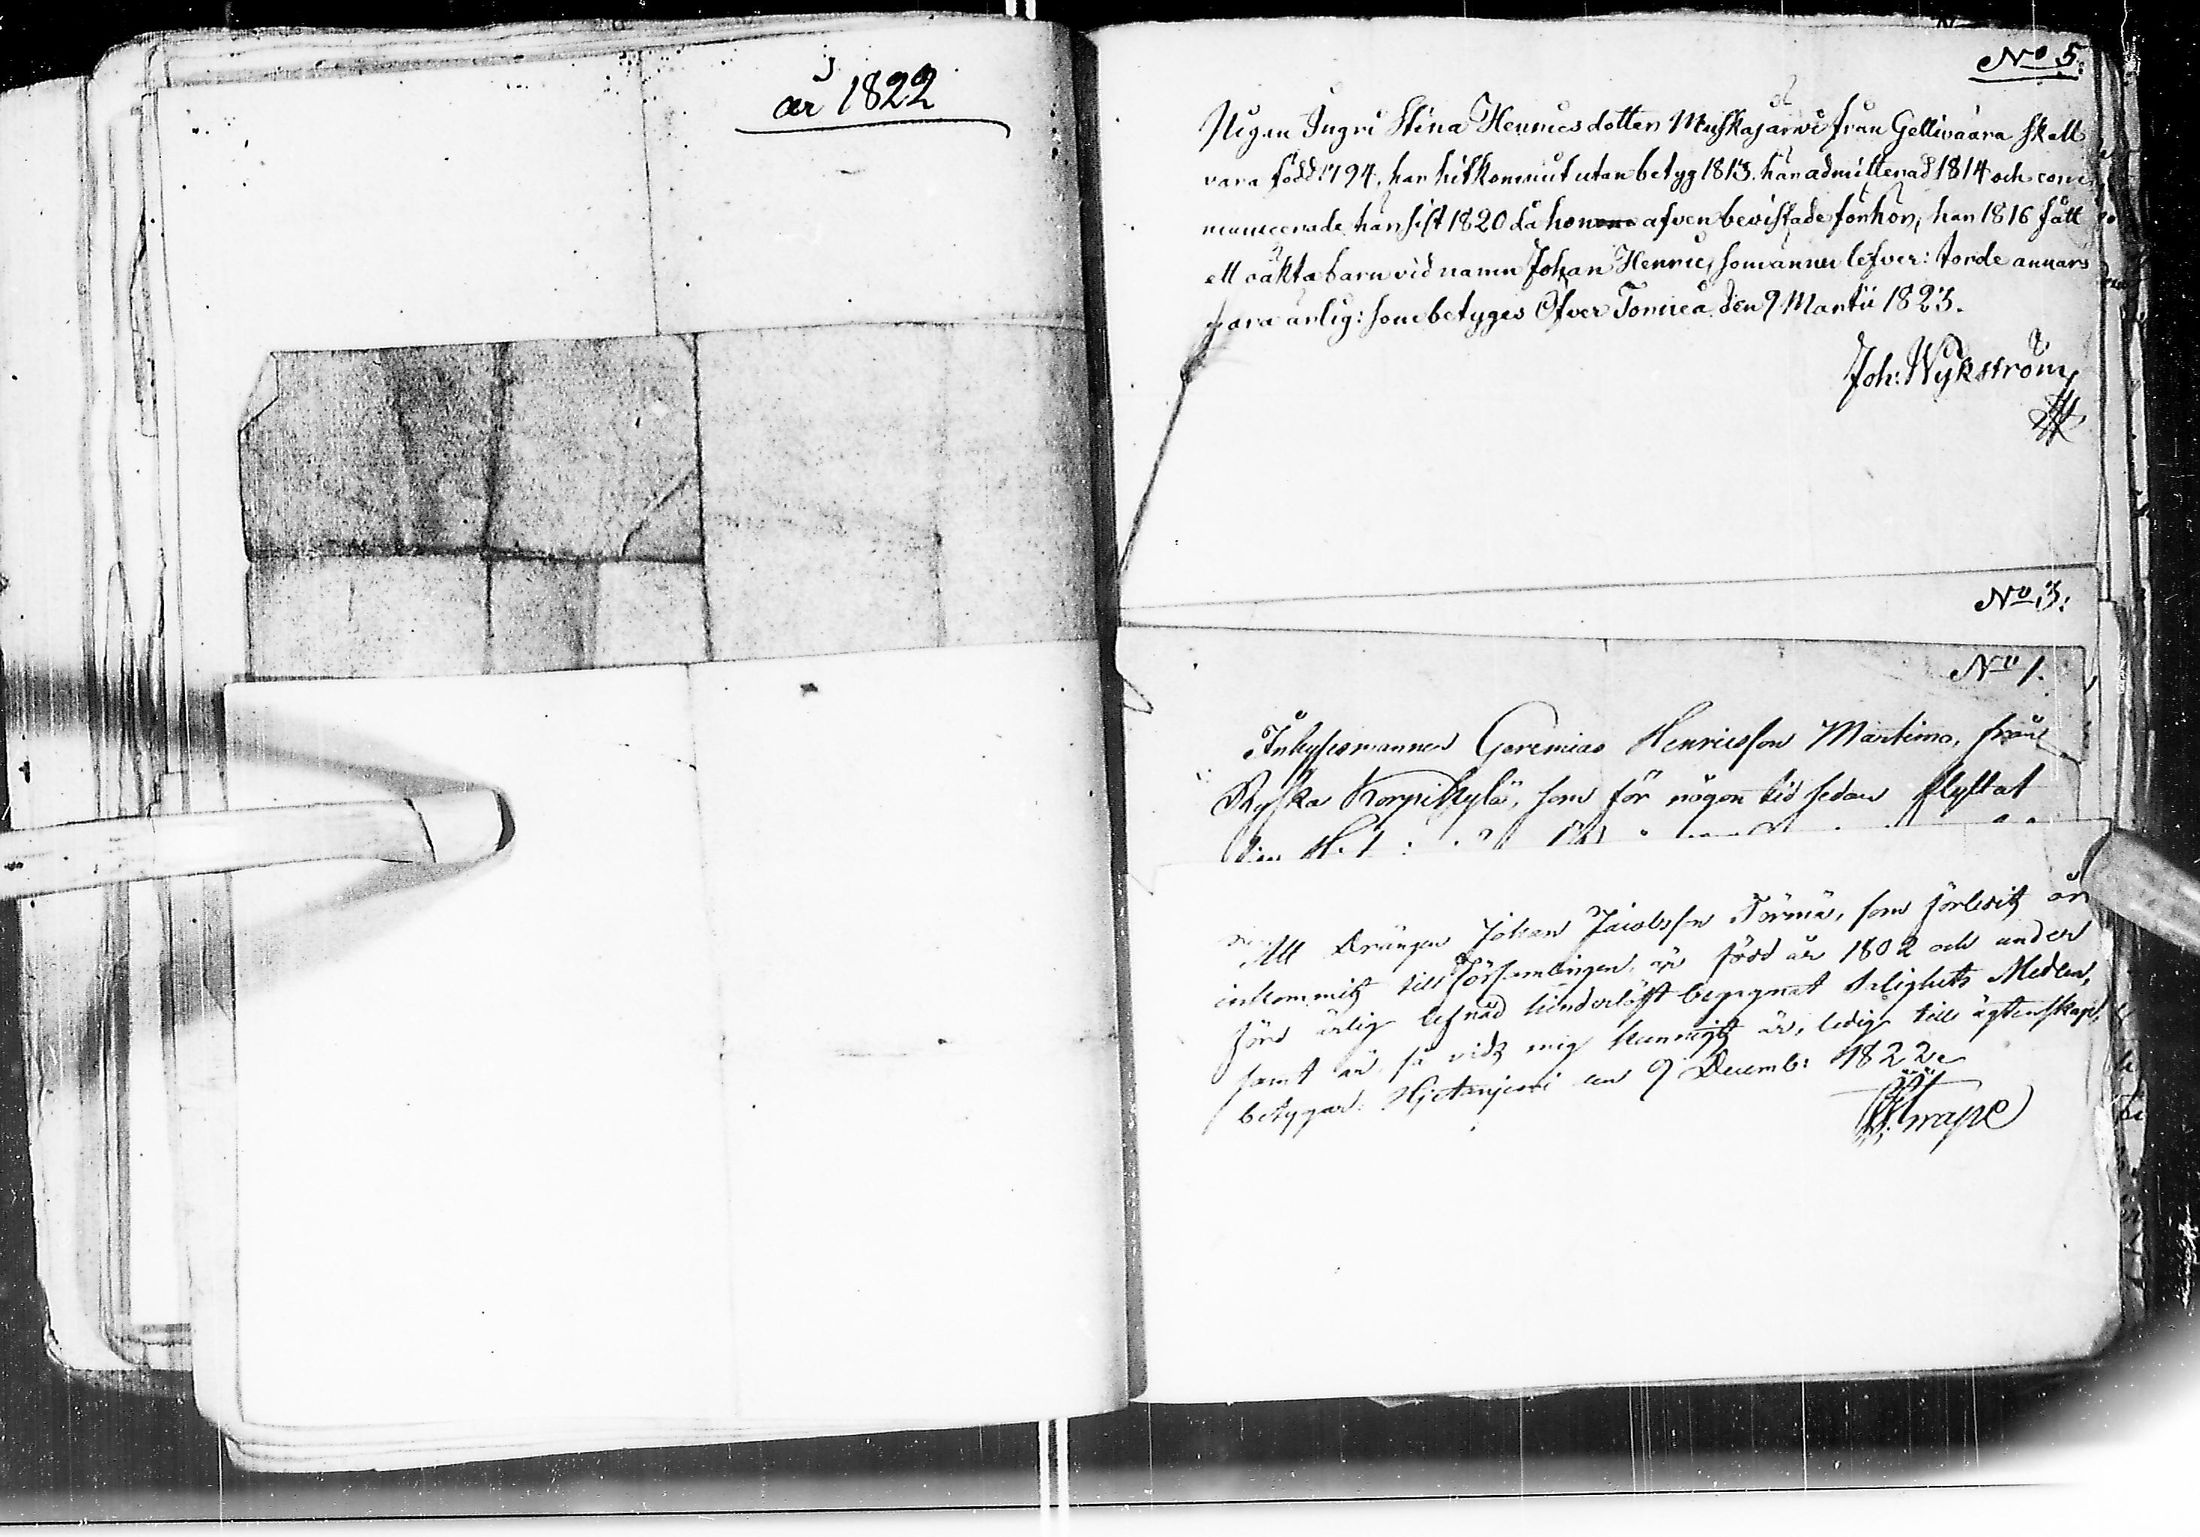 år 1822
No 5.
Pigan Ingri Stina Henricsdotter Muskajärvi från Gellivaara skall
vara född 1794, har hitkommit utan betyg 1813. här admitterad 1814 och com
municerade här sist 1820 då hon äfven bevistade förhör, har 1816 fått
ett oäkta barn vid namn Johan Henric, som ännu lefver: torde annars
vara ärlig: som betygas Öfver Torneå den 9 Martii 1823.
Joh: Wykström
No 3:
No 1.
Inhysesmannen Geremias Henricsson Martimo, från
Ryska Korpikylä, som för någon tid sedan flyttat
Att Drängen Johan Jacobsson Törmä, som förledit år
inkommit till Församlingen, är född år 1802 och under
förd ärlig lefnad hinderlöst begagnat Salighets Medlen,
samt är, så vidt mig kunnigt är, ledig till ägtenskap,
betygar. Hjetanjemi den 9 Decemb: 1822.
Grape